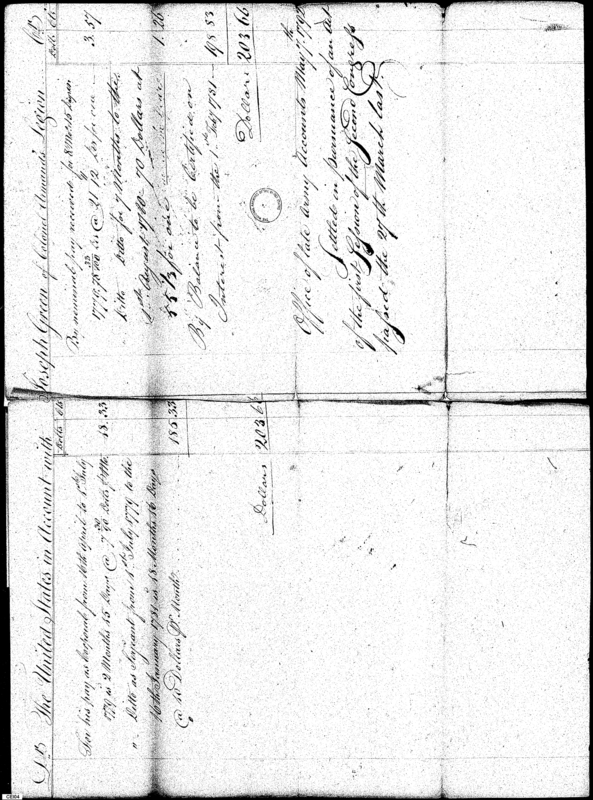 Dr The United States in Account with Joseph Green of Colonel Armands Legion Cr
Dolls Cts
For his pay as Corporal from 16th April to 1st July
1779 is 2 Months 15 Days @ 7 30 Dolls Pr Mo. 18.33
" Ditto as Serjeant from 1st July 1779 to the
16th January 1781 is 18 Months 16 Days
@ 10 Dollars Pr Month 185.33
Dollars 203 66
Dolls Cts
By nominal pay received for 8 Mo 15 Days
1779 is @ 21/12 for one 3.57
Ditto Ditto for 7 Months to the
1st August 1780 70 Dollars at
55 1/3 for one 1.26
By Balance to be Certified on
Interest from the 1st Jany 1781 198 83
Dollars 203 66
Office of late Army Accounts May 7th 1792
Settled in pursuance of an Act
of the first Session of the Second Congress
passed the 27th March last.